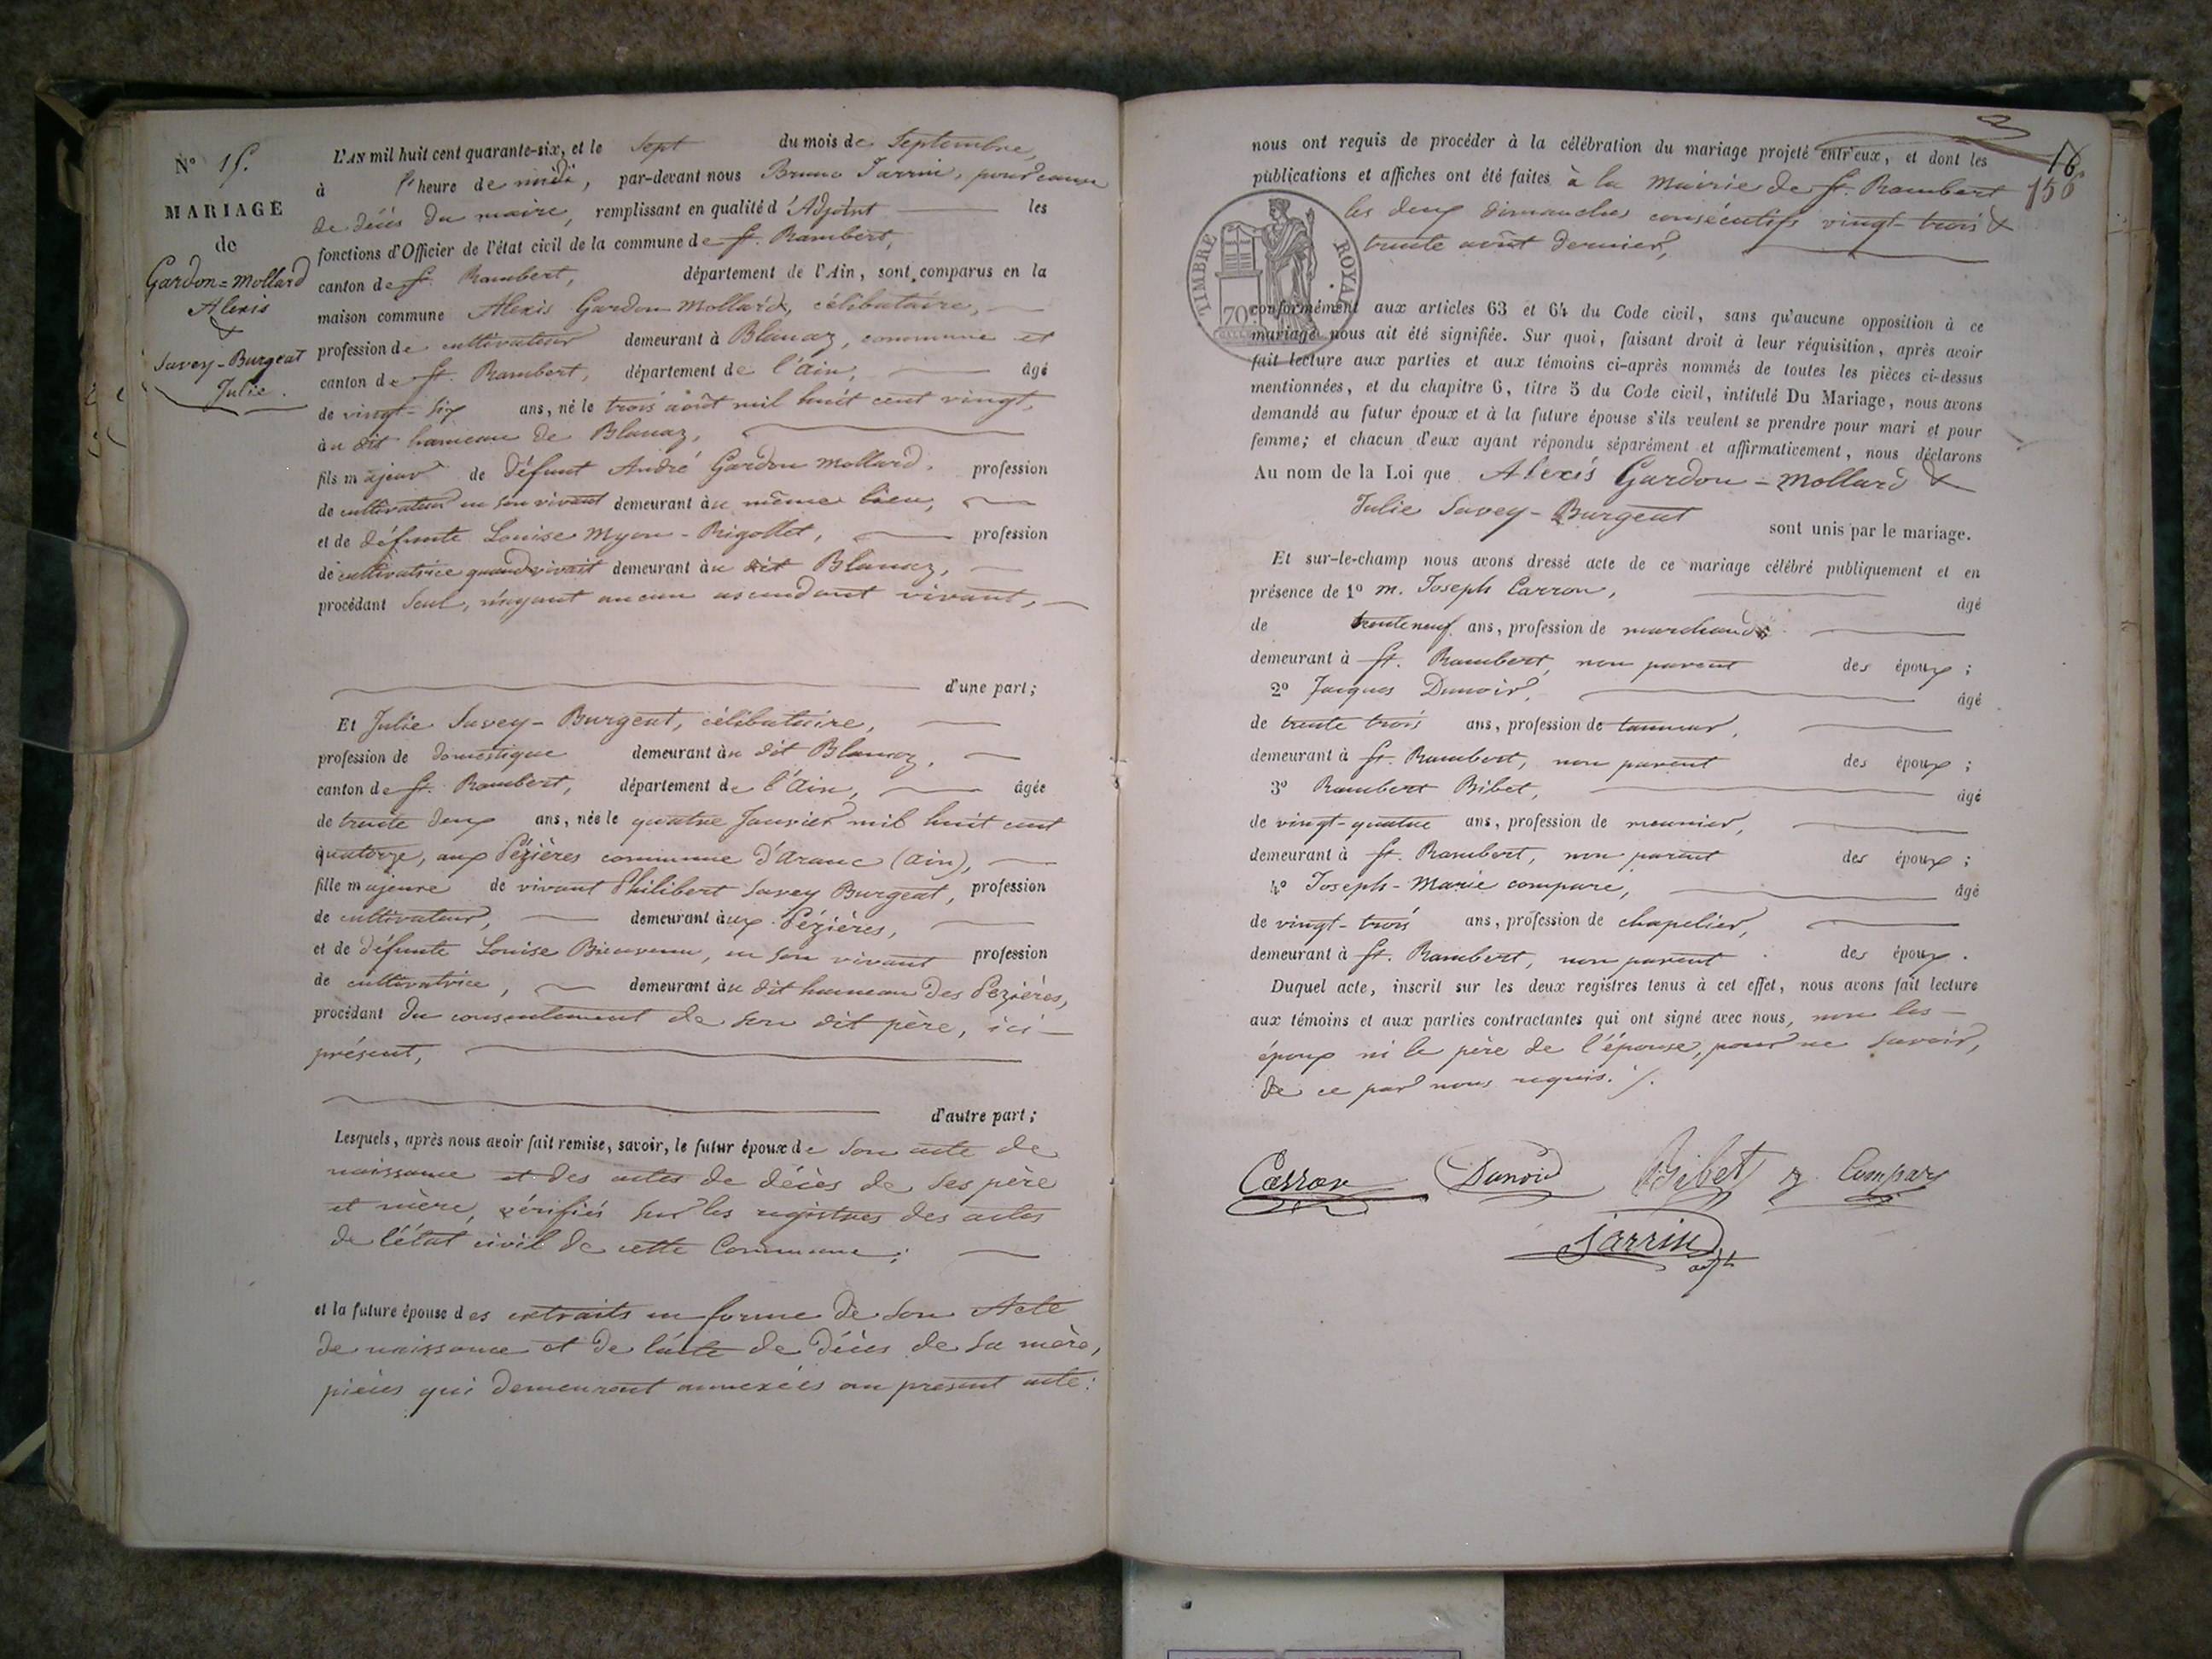 N° 15.
MARIAGE
de
Gardon=Mollard
Alexis
&
Savey-Burgeat
Julie.
L'AN mil huit cent quarante-six, et le sept du mois de Septembre,
à l'heure de midi, par-devant nous Bruno Jarrin, pour cause
de décès du maire, remplissant en qualité d'Adjoint les
fonctions d'Officier de l'état civil de la commune de St. Rambert,
canton de St. Rambert, département de l'Ain, sont comparus en la
maison commune Alexis Gardon Mollard, célibataire,
profession de cultivateur demeurant à Blanaz, commune et
canton de St. Rambert, département de l'Ain, âgé
de vingt-six ans, né le trois août mil huit cent vingt,
au dit hameau de Blanaz,
fils majeur de défunt André Gardon Mollard, profession
de cultivateur en son vivant demeurant au même lieu,
et de défunte Louise Myon-Rigollet, profession
de cultivatrice quand vivait demeurant au dit Blanaz,
procédant seul, n'ayant aucun ascendant vivant,
d'une part;
Et Julie Savey-Burgeat, célibataire,
profession de domestique demeurant au dit Blanaz,
canton de St. Rambert, département de l'Ain, âgée
de trente deux ans, née le quatre Janvier mil huit cent
quatorze, aux Pézières commune d'Aranc (Ain),
fille majeure de vivant Philibert Savey Burgeat, profession
de cultivateur, demeurant aux Pézières,
et de défunte Louise Bienvenu, en son vivant profession
de cultivatrice, demeurant au dit hameau des Pézières,
procédant du consentement de son dit père, ici
présent,
d'autre part;
Lesquels, après nous avoir fait remise, savoir, le futur époux de son acte de
naissance et des actes de décès de ses père
et mère, vérifiés sur les registres des actes
de l'état civil de cette Commune;
et la future épouse des extraits en forme de son Acte
de naissance et de l'acte de décès de sa mère,
pièces qui demeurent annexées au présent acte:
16
156
nous ont requis de procéder à la célébration du mariage projeté entr'eux, et dont les
publications et affiches ont été faites à la Mairie de St. Rambert
les deux dimanches consécutifs vingt-trois &
trente août dernier,
TIMBRE ROYAL
70c
conformément aux articles 63 et 64 du Code civil, sans qu'aucune opposition à ce
mariage nous ait été signifiée. Sur quoi, faisant droit à leur réquisition, après avoir
fait lecture aux parties et aux témoins ci-après nommés de toutes les pièces ci-dessus
mentionnées, et du chapitre 6, titre 5 du Code civil, intitulé Du Mariage, nous avons
demandé au futur époux et à la future épouse s'ils veulent se prendre pour mari et pour
femme; et chacun d'eux ayant répondu séparément et affirmativement, nous déclarons
Au nom de la Loi que Alexis Gardon=Mollard &
Julie Savey-Burgeat sont unis par le mariage.
Et sur-le-champ nous avons dressé acte de ce mariage célébré publiquement et en
présence de 1° M. Joseph Carron, âgé
de trente neuf ans, profession de marchand
demeurant à St. Rambert, non parent des époux;
2° Jacques Dunoir, âgé
de trente trois ans, profession de tanneur,
demeurant à St. Rambert, non parent des époux;
3° Rambert Bibet, âgé
de vingt-quatre ans, profession de meunier,
demeurant à St. Rambert, non parent des époux;
4° Joseph-Marie compare, âgé
de vingt-trois ans, profession de chapelier,
demeurant à St. Rambert, non parent des époux.
Duquel acte, inscrit sur les deux registres tenus à cet effet, nous avons fait lecture
aux témoins et aux parties contractantes qui ont signé avec nous, non les
époux ni le père de l'épouse, pour ne savoir,
de ce par nous requis.
Carron Dunoir Bibet Compare
Jarrin
adjt